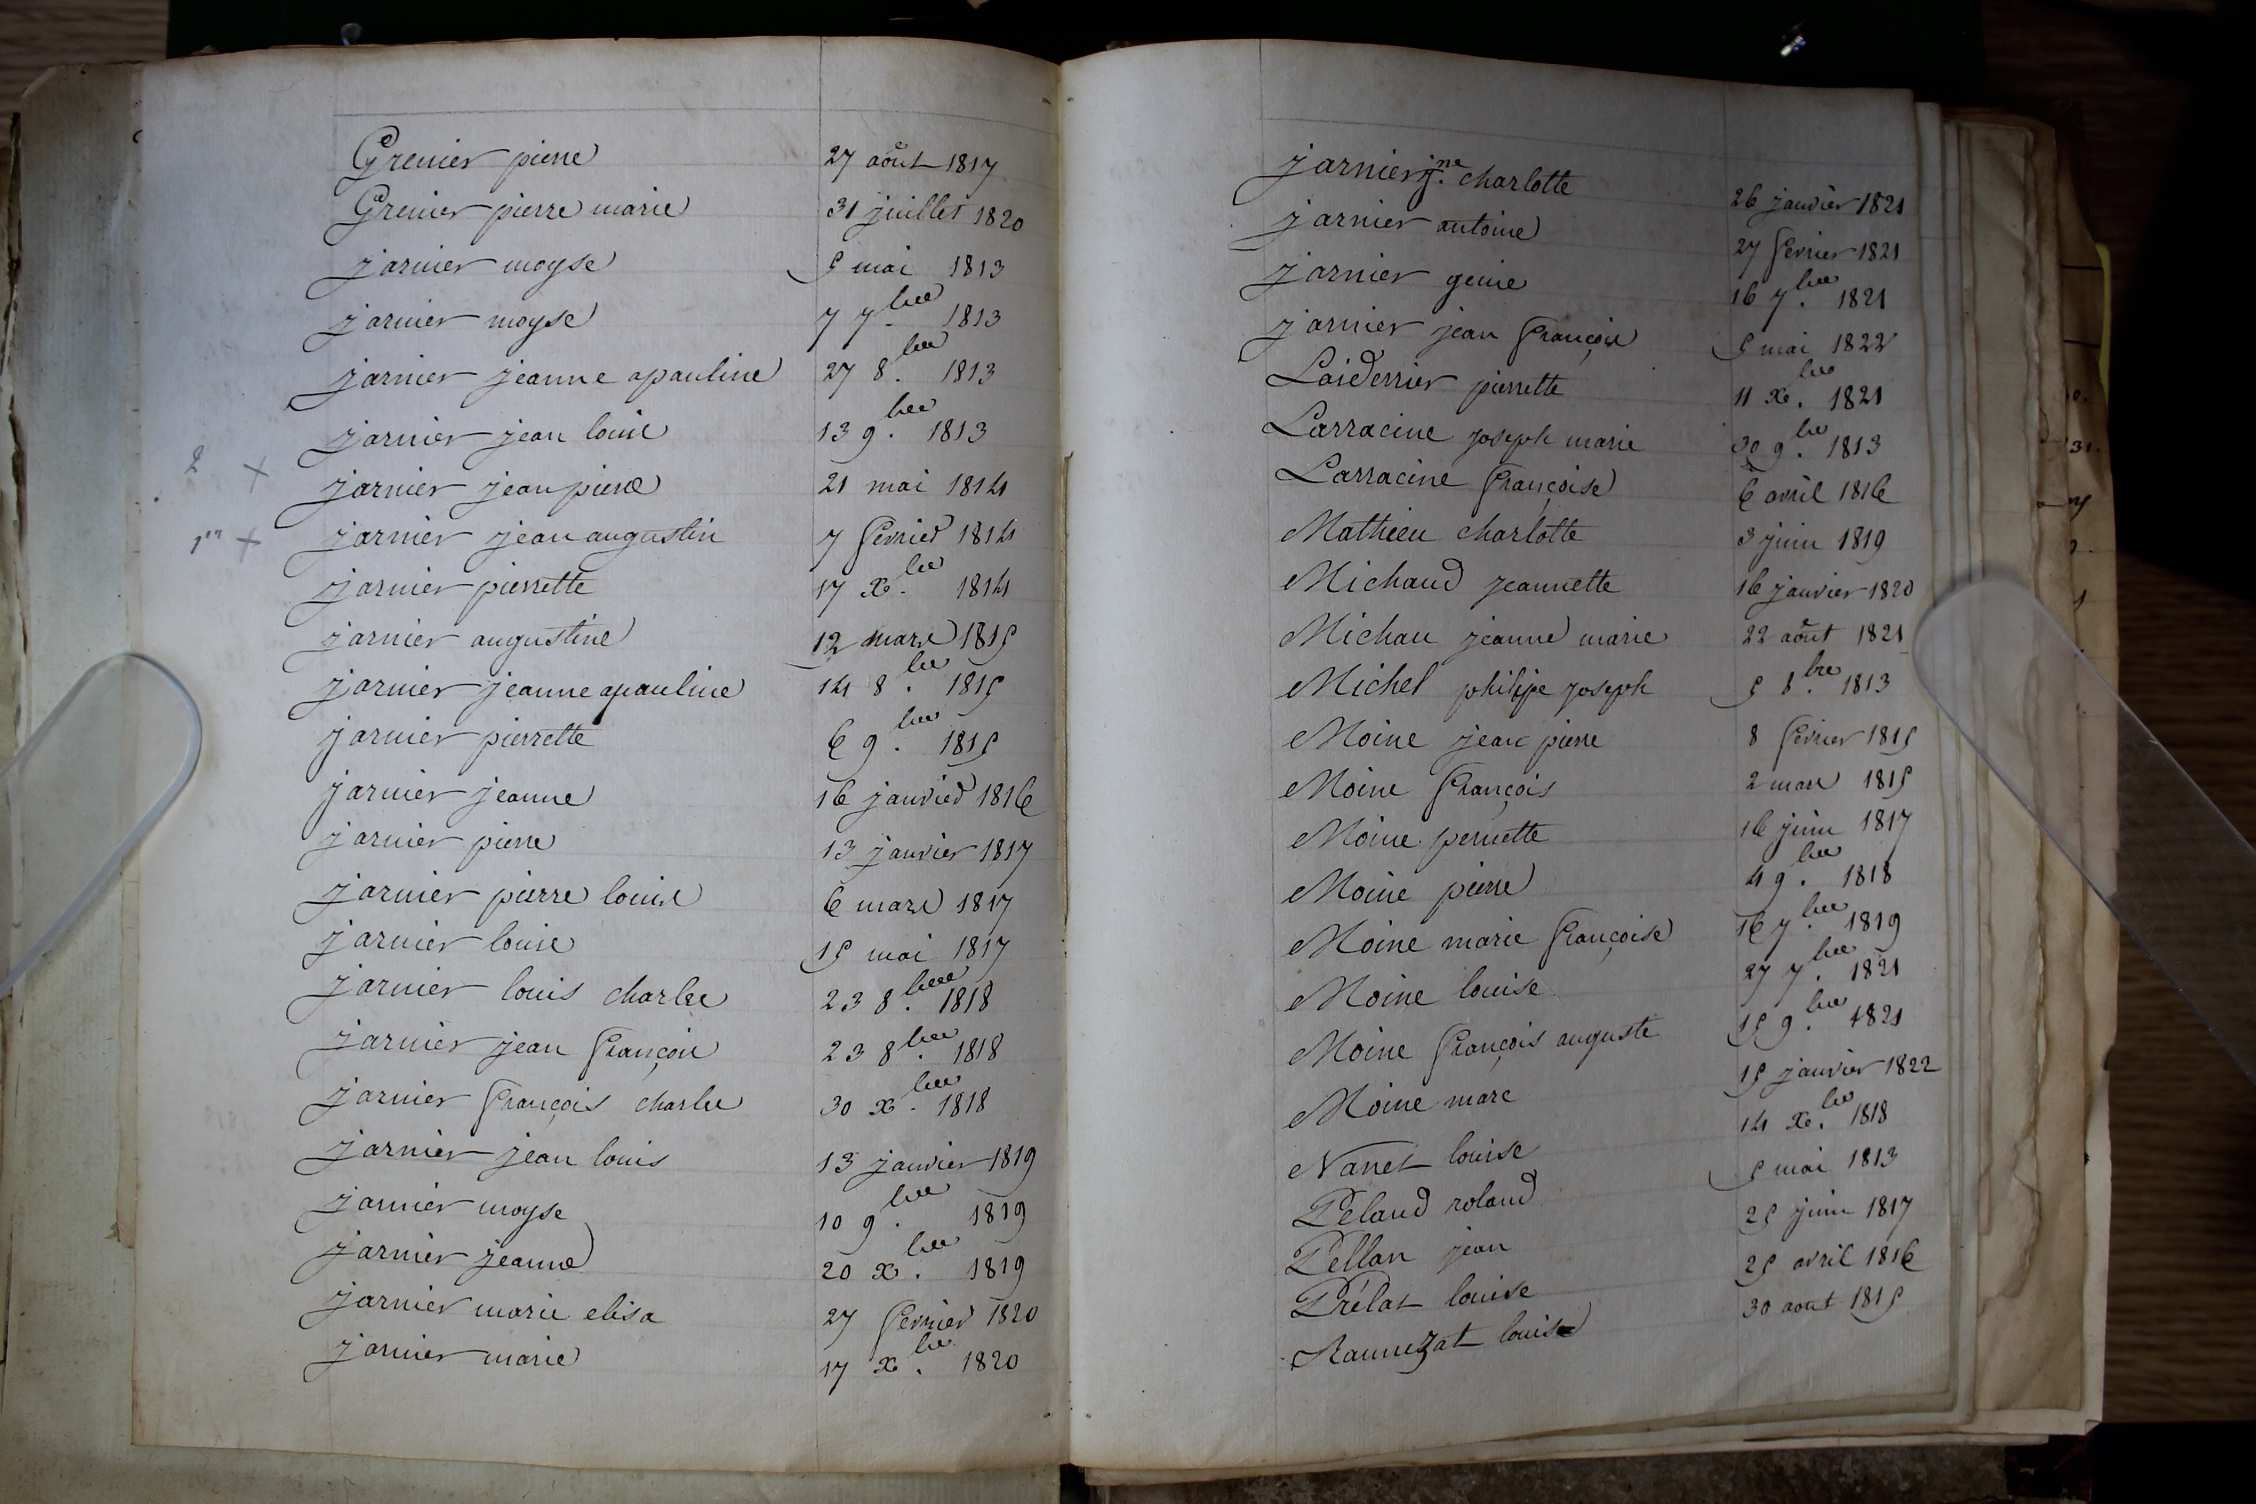 Grenier pierre 27 août 1817
Grenier pierre marie 31 juillet 1820
jarnier moyse 5 mai 1813
jarnier moyse 7 7.bre 1813
jarnier jeanne apauline 27 8.bre 1813
jarnier jean louis 13 9.bre 1813
2 × jarnier jean pierre 21 mai 1814
1er × jarnier jean augustin 7 fevrier 1814
jarnier pierrette 17 xe.bre 1814
jarnier augustine 12 mars 1815
jarnier jeanne apauline 14 8.bre 1815
jarnier pierrette 6 9.bre 1815
jarnier jeanne 16 janvier 1816
jarnier pierre 13 janvier 1817
jarnier pierre louis 6 mars 1817
jarnier louise 15 mai 1817
jarnier louis charles 23 8.bre 1818
jarnier jean françois 23 8.bre 1818
jarnier françois charles 30 xe.bre 1818
jarnier jean louis 13 janvier 1819
jarnier moyse 10 9.bre 1819
jarnier jeanne 20 xe.bre 1819
jarnier marie elisa 27 fevrier 1820
jarnier marie 17 xe.bre 1820
jarnier j.ne charlotte 26 janvier 1821
jarnier antoine 27 fevrier 1821
jarnier genie 16 7.bre 1821
jarnier jean françois 5 mai 1822
Laiderrier pierrette 11 xe.bre 1821
Larracine joseph marie 30 9.bre 1813
Larracine françoise 6 avril 1816
Mathieu charlotte 3 juin 1819
Michaud jeannette 16 janvier 1820
Michau jeanne marie 22 août 1821
Michel philippe joseph 5 8.bre 1813
Moine jean pierre 8 fevrier 1815
Moine françois 2 mars 1815
Moine pernette 16 juin 1817
Moine pierre 4 9.bre 1818
Moine marie françoise 16 7.bre 1819
Moine louise 27 7.bre 1821
Moine françois auguste 15 9.bre 1821
Moine marc 15 janvier 1822
Nanet louise 14 xe.bre 1818
Pelaud roland 5 mai 1813
Pellan jean 25 juin 1817
Prélat louise 25 avril 1816
Rannezat louise 30 aout 1815